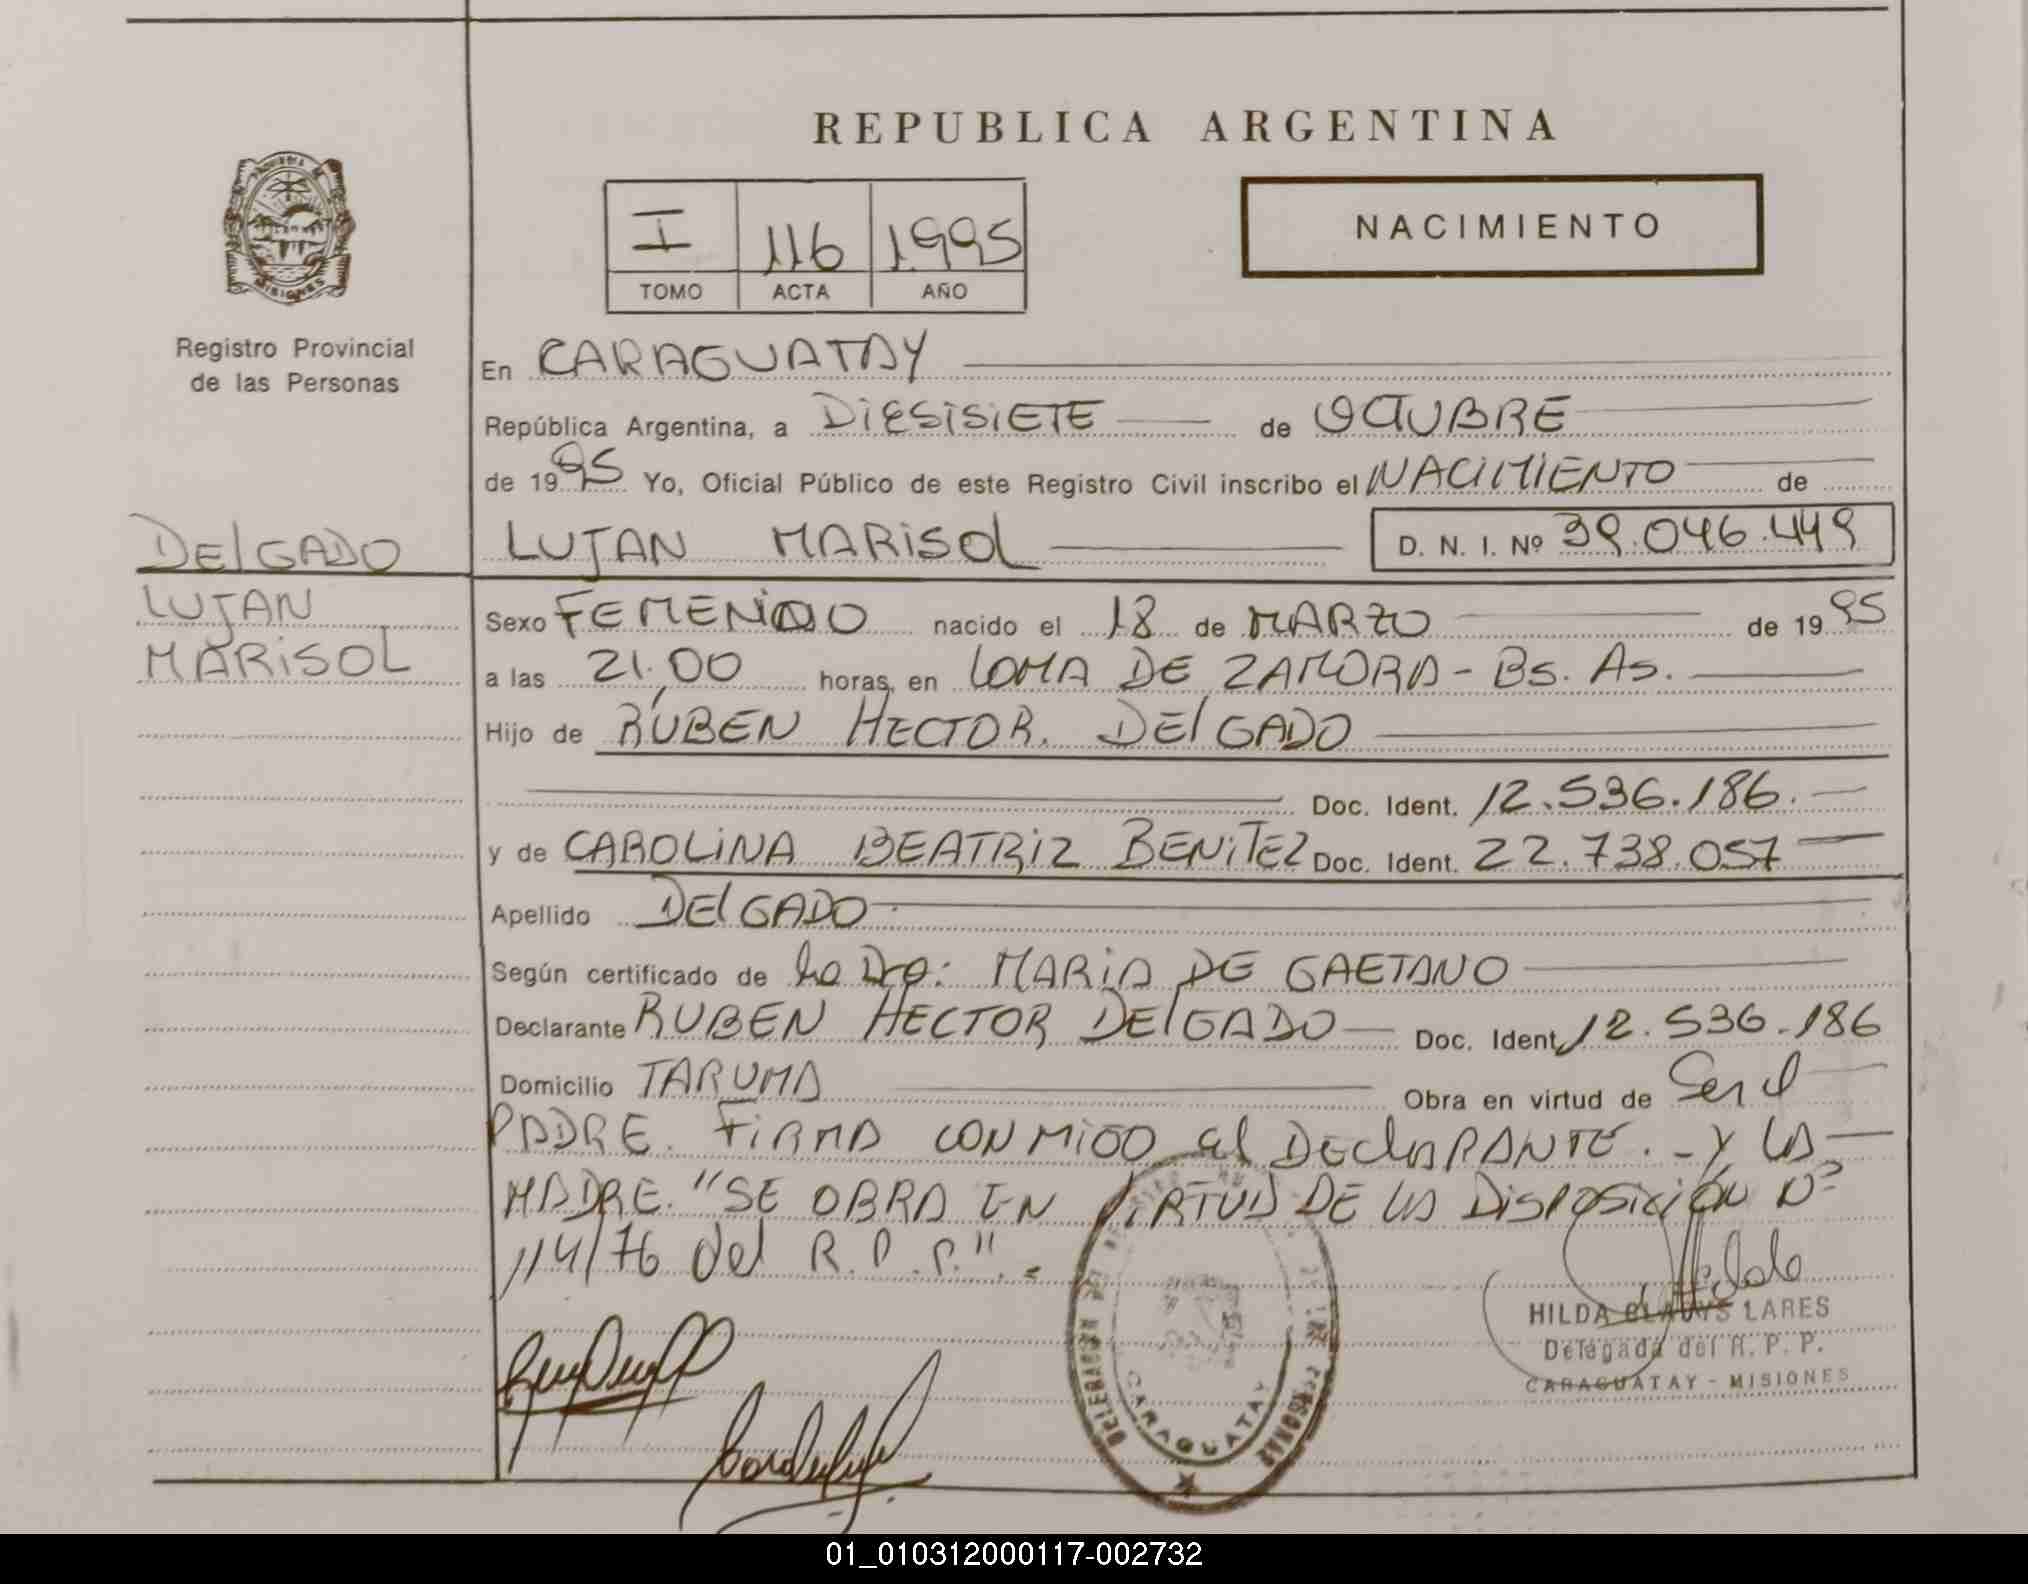 REPUBLICA ARGENTINA
I 116 1995
TOMO ACTA AÑO
NACIMIENTO
MISIONES
Registro Provincial
de las Personas
DELGADO
LUJAN
MARISOL
En CARAGUATAY
República Argentina, a DIESISIETE de OCTUBRE
de 1995 Yo, Oficial Público de este Registro Civil inscribo el NACIMIENTO de
LUJAN MARISOL D. N. I. Nº 39.046.449
Sexo FEMENINO nacido el 18 de MARZO de 1995
a las 21,00 horas, en LOMA DE ZAMORA - Bs. As.
Hijo de RUBEN HECTOR. DELGADO
Doc. Ident. 12.536.186.
y de CAROLINA BEATRIZ BENITEZ Doc. Ident. 22.738.057
Apellido DELGADO
Según certificado de La Dra: MARIA DE GAETANO
Declarante RUBEN HECTOR DELGADO Doc. Ident. 12.536.186
Domicilio TARUMA Obra en virtud de Ser el
PADRE. FIRMA CONMIGO el DEClARANTE. - Y LA
MADRE. "SE OBRA EN VIRTUD DE LA DISPOSICIÓN Nº
114/76 del R.P.P.".-
HILDA GLADYS LARES
Delegada del R. P. P.
CARAGUATAY - MISIONES
DELEGACION DEL REGISTRO DE LAS PERSONAS
CARAGUATAY
01_010312000117-002732